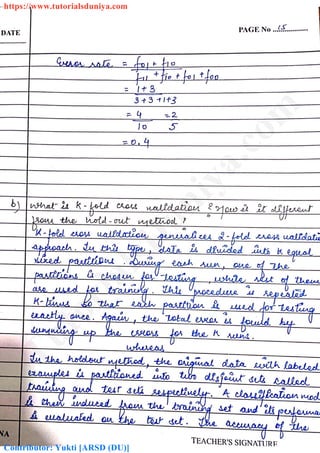 https://www.tutorialsduniya.com
DATE
PAGE No 15
Error rate = f01 + f10
f11 + f10 + f01 + f00
= 1 + 3
3 + 3 + 1 + 3
= 4 = 2
10 5
= 0.4
b) What is K-fold cross validation? How is it different
from the hold-out method?
K-fold cross validation generalizes 2-fold cross validati
approach. In this type, data is divided into K equal
sized partitions. During each run, one of the
partitions is chosen for testing, while rest of them
are used for training. This procedure is repeated
K-times so that each partition is used for testing
exactly once. Again, the total error is found by
summing up the errors for the K runs.
whereas
In the holdout method, the original data with labeled
examples is partitioned into two disjoint sets called
training and test sets respectively. A classification mod
is then induced from the training set and its performa
is evaluated on the test set. The accuracy of the
NA
TEACHER'S SIGNATURE
Contributor: Yukti [ARSD (DU)]